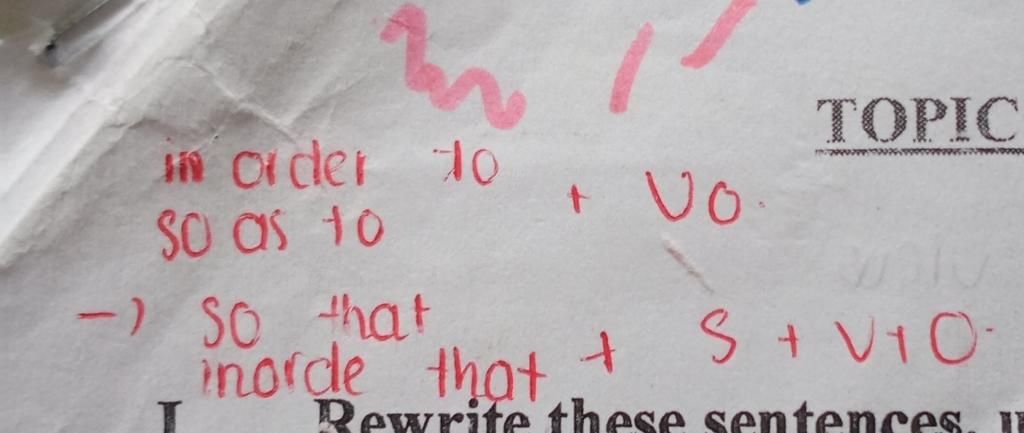 TOPIC
in order to
so as to + Vo.
→ so that
inorde that + S + V + O.
I. Rewrite these sentences, u